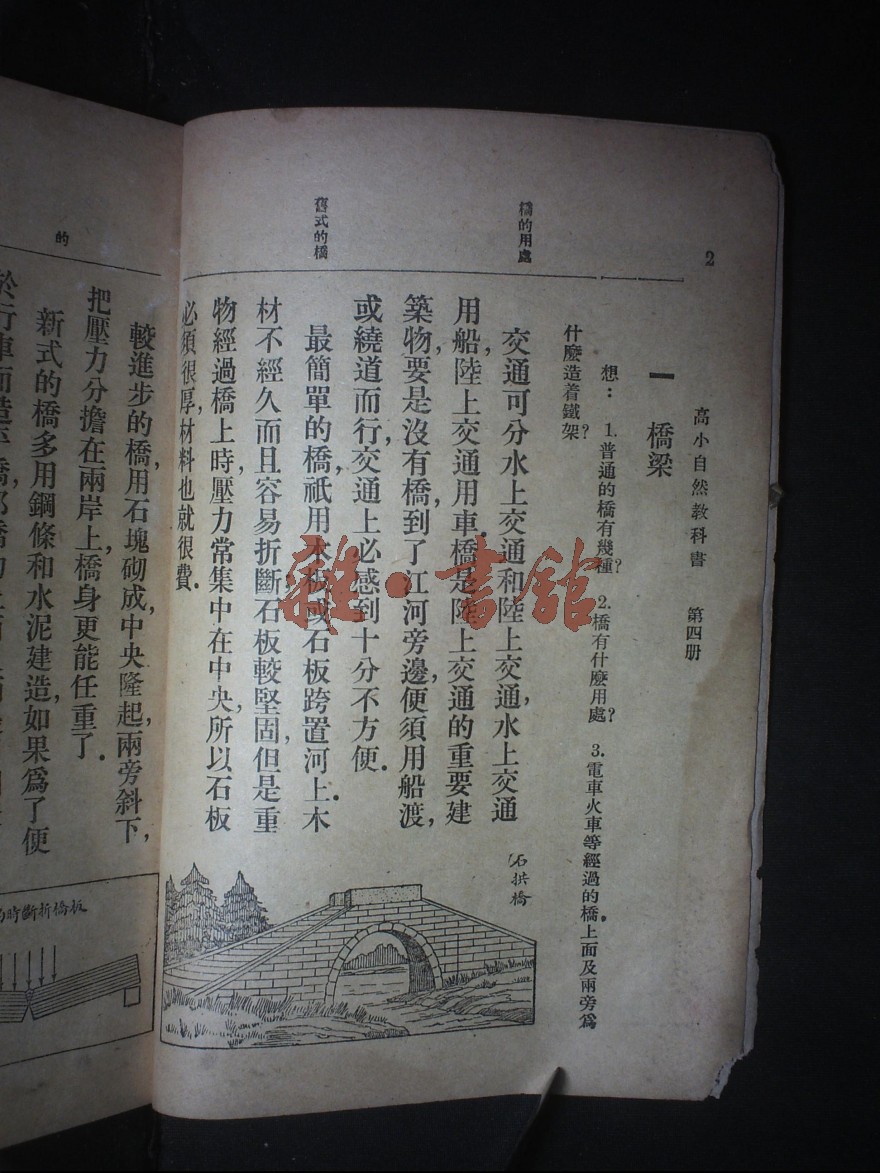 2
高小自然教科書　第四册
一　橋梁
想：　1.普通的橋有幾種？　2.橋有什麽用處？　3.電車火車等經過的橋上面及兩旁爲
什麽造着鐵架？
橋的用處
交通可分水上交通和陸上交通，水上交通
用船，陸上交通用車．橋是陸上交通的重要建
築物，要是沒有橋，到了江河旁邊，便須用船渡，
或繞道而行，交通上必感到十分不方便．
舊式的橋
最簡單的橋，祇用木板或石板跨置河上．木
材不經久而且容易折斷，石板較堅固，但是重
物經過橋上時，壓力常集中在中央，所以石板
必須很厚，材料也就很費．
石拱橋
較進步的橋，用石塊砌成，中央隆起，兩旁斜下，
把壓力分擔在兩岸上，橋身更能任重了．
的
新式的橋多用鋼條和水泥建造，如果爲了便
於行車而造
時斷折橋板
雜·書館